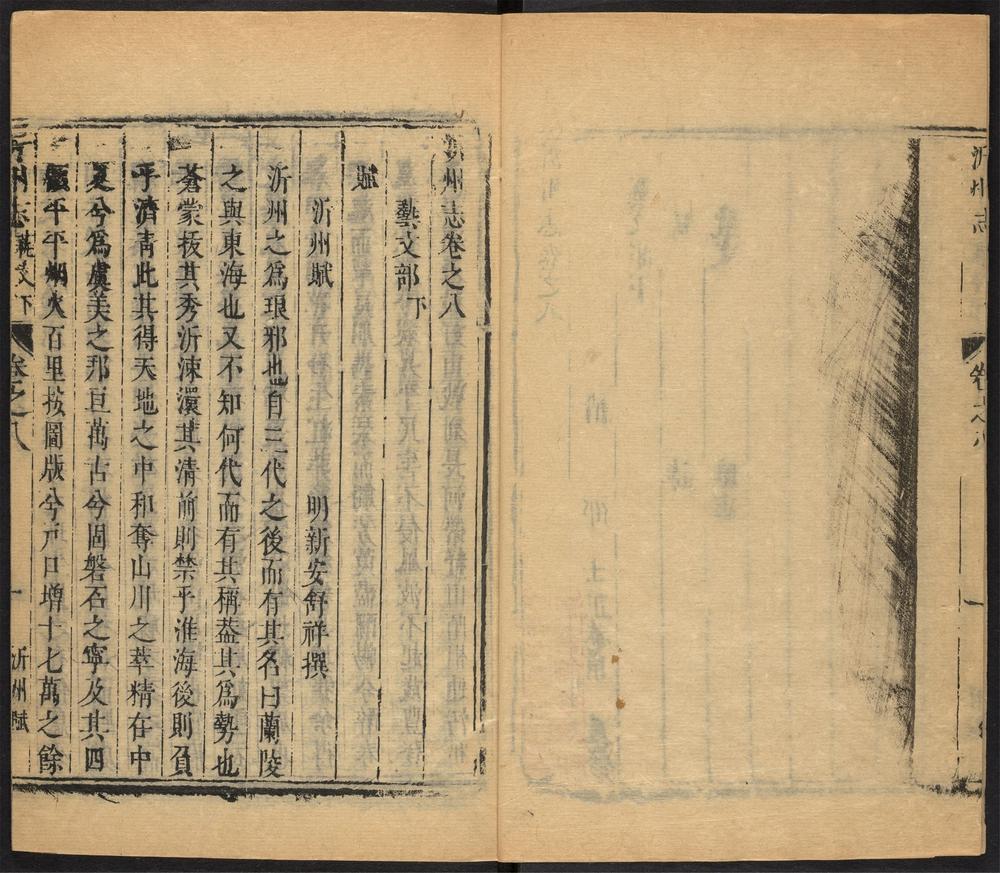 沂州志
卷之八
一
沂州志卷之八
藝文部下
賦
沂州賦
明新安舒祥撰
沂州之爲琅邪也自三代之後而有其名曰蘭陵
之與東海也又不知何代而有其稱葢其爲勢也
蒼蒙拔其秀沂涑瀠其清前則禁乎淮海後則負
乎濟青此其得天地之中和奪山川之萃精在中
夏兮爲虞美之邦亘萬古兮固磐石之寧及其四
平平烟火百里按圖版兮戸口增十七萬之餘
沂州志藝文下
卷之八
一
沂州賦